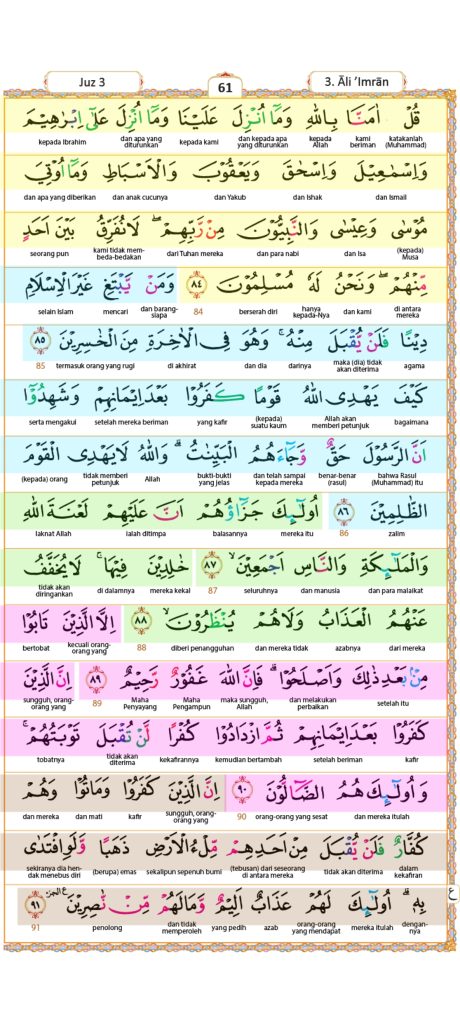 Juz 3 61 3. Āli ‘Imrān
قُلْ اٰمَنَّا بِاللّٰهِ وَمَآ اُنْزِلَ عَلَيْنَا وَمَآ اُنْزِلَ عَلٰٓى اِبْرٰهِيْمَ
katakanlah (Muhammad) kami beriman kepada Allah dan kepada apa yang diturunkan kepada kami dan apa yang diturunkan kepada Ibrahim
وَاِسْمٰعِيْلَ وَاِسْحٰقَ وَيَعْقُوْبَ وَالْاَسْبَاطِ وَمَآ اُوْتِيَ
dan Ismail dan Ishak dan Yakub dan anak cucunya dan apa yang diberikan
مُوْسٰى وَعِيْسٰى وَالنَّبِيُّوْنَ مِنْ رَّبِّهِمْۖ لَا نُفَرِّقُ بَيْنَ اَحَدٍ
(kepada) Musa dan Isa dan para nabi dari Tuhan mereka kami tidak membeda-bedakan seorang pun
مِّنْهُمْۖ وَنَحْنُ لَهٗ مُسْلِمُوْنَ ٨٤ وَمَنْ يَّبْتَغِ غَيْرَ الْاِسْلَامِ
di antara mereka dan kami hanya kepada-Nya berserah diri 84 dan barangsiapa mencari selain Islam
دِيْنًا فَلَنْ يُّقْبَلَ مِنْهُۚ وَهُوَ فِى الْاٰخِرَةِ مِنَ الْخٰسِرِيْنَ ٨٥
agama maka (dia) tidak akan diterima darinya dan dia di akhirat termasuk orang yang rugi 85
كَيْفَ يَهْدِى اللّٰهُ قَوْمًا كَفَرُوْا بَعْدَ اِيْمَانِهِمْ وَشَهِدُوْٓا
bagaimana Allah akan memberi petunjuk (kepada) suatu kaum yang kafir setelah mereka beriman serta mengakui
اَنَّ الرَّسُوْلَ حَقٌّ وَّجَاۤءَهُمُ الْبَيِّنٰتُۗ وَاللّٰهُ لَا يَهْدِى الْقَوْمَ
bahwa Rasul (Muhammad) itu benar-benar (rasul) dan telah sampai kepada mereka bukti-bukti yang jelas Allah tidak memberi petunjuk (kepada) orang
الظّٰلِمِيْنَ ٨٦ اُولٰۤىِٕكَ جَزَاۤؤُهُمْ اَنَّ عَلَيْهِمْ لَعْنَةَ اللّٰهِ
zalim 86 mereka itu balasannya ialah ditimpa laknat Allah
وَالْمَلٰۤىِٕكَةِ وَالنَّاسِ اَجْمَعِيْنَۙ ٨٧ خٰلِدِيْنَ فِيْهَاۚ لَا يُخَفَّفُ
dan para malaikat dan manusia seluruhnya 87 mereka kekal di dalamnya tidak akan diringankan
عَنْهُمُ الْعَذَابُ وَلَا هُمْ يُنْظَرُوْنَۙ ٨٨ اِلَّا الَّذِيْنَ تَابُوْا
dari mereka azabnya dan mereka tidak diberi penangguhan 88 kecuali orang-orang yang bertobat
مِنْۢ بَعْدِ ذٰلِكَ وَاَصْلَحُوْاۗ فَاِنَّ اللّٰهَ غَفُوْرٌ رَّحِيْمٌ ٨٩ اِنَّ الَّذِيْنَ
setelah itu dan melakukan perbaikan maka sungguh, Allah Maha Pengampun Maha Penyayang 89 sungguh, orang-orang yang
كَفَرُوْا بَعْدَ اِيْمَانِهِمْ ثُمَّ ازْدَادُوْا كُفْرًا لَّنْ تُقْبَلَ تَوْبَتُهُمْۚ
kafir setelah beriman kemudian bertambah kekafirannya tidak akan diterima tobatnya
وَاُولٰۤىِٕكَ هُمُ الضَّاۤلُّوْنَ ٩٠ اِنَّ الَّذِيْنَ كَفَرُوْا وَمَاتُوْا وَهُمْ
dan mereka itulah orang-orang yang sesat 90 sungguh, orang-orang yang kafir dan mati dan mereka
كُفَّارٌ فَلَنْ يُّقْبَلَ مِنْ اَحَدِهِمْ مِّلْءُ الْاَرْضِ ذَهَبًا وَّلَوِ افْتَدٰى
dalam kekafiran tidak akan diterima (tebusan) dari seseorang di antara mereka sekalipun sepenuh bumi (berupa) emas sekiranya dia hendak menebus diri
بِهٖۗ اُولٰۤىِٕكَ لَهُمْ عَذَابٌ اَلِيْمٌ وَّمَا لَهُمْ مِّنْ نّٰصِرِيْنَ ٩١ ع
dengannya mereka itulah orang-orang yang mendapat azab yang pedih dan tidak memperoleh penolong 91